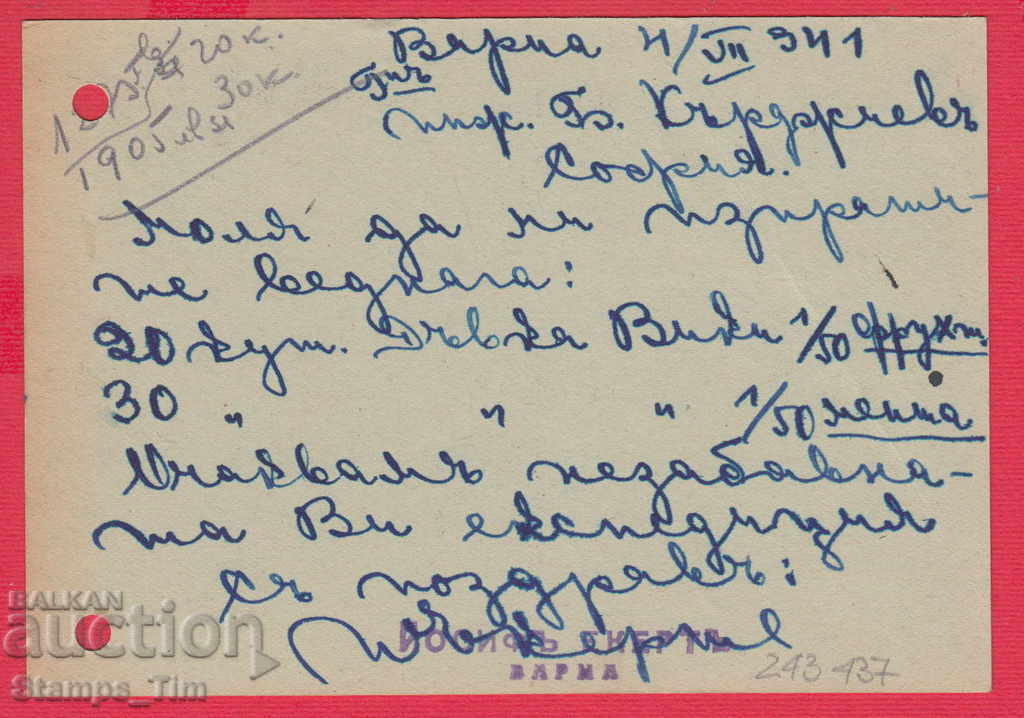 20 к.
30 к.
1905 лв
Варна 4/VII 941
Г-нъ
инж. Б. Кърджиевъ
София.
Моля да ни изпрати-
те веднага:
20 кут. Дъвка Вики 1/50 фрукт
30 " " " 1/50 мента
Очаквамъ незабавна-
та Ви експедиция
Съ поздравъ:
ЙОСИФЪ
ВАРНА
243 437
BALKAN
auction
Stamps_Tim